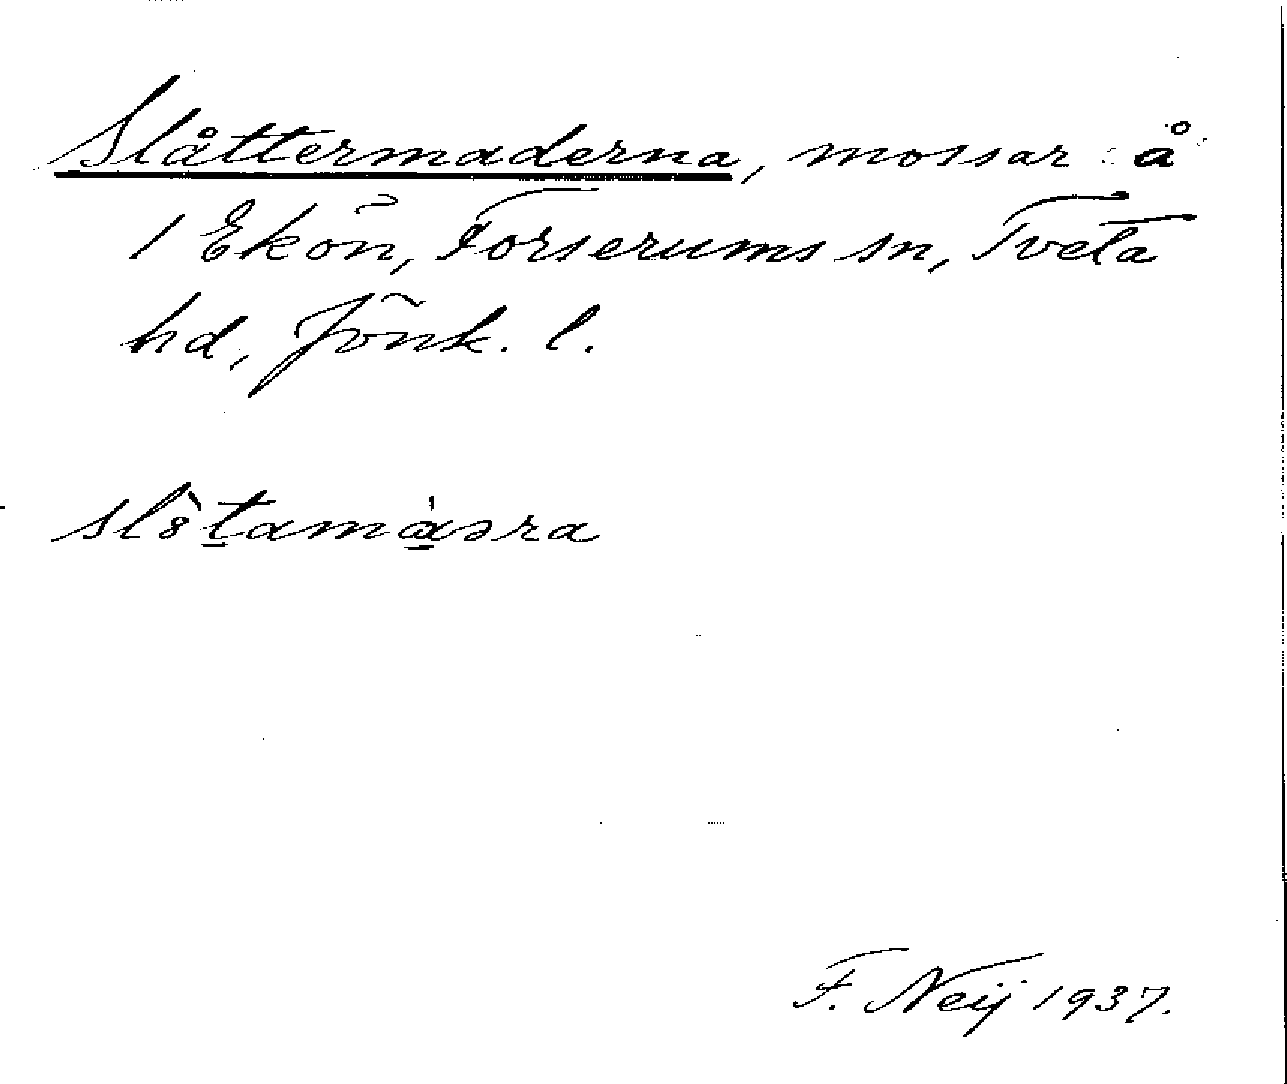 Slåttermaderna, mossar å
1 Ekön, Forserums sn, Tveta
hd, Jönk. l.
F. Neij 1937.